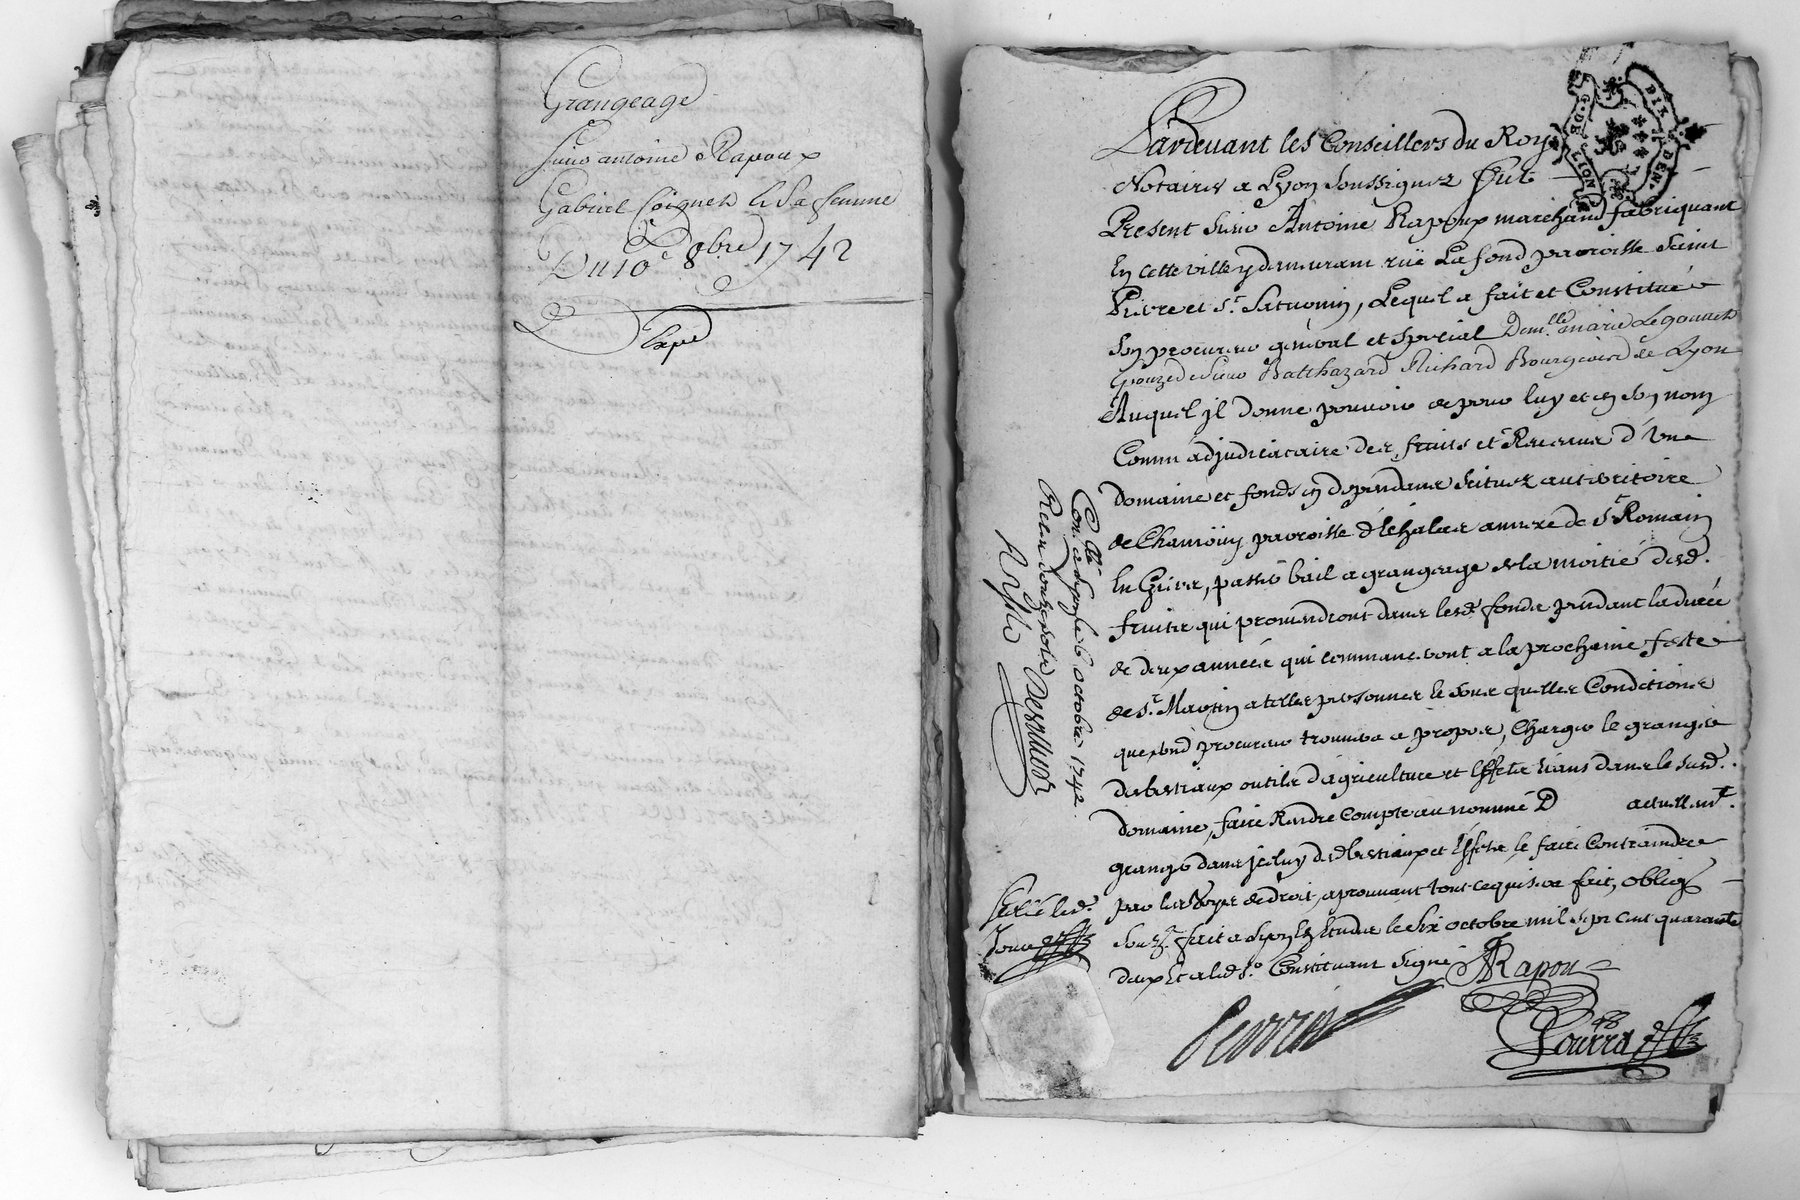 Grangeage
Sieur antoine Rapoux
Gabriel Coignet & Sa femme
Du 10e 8bre 1742
Expé
G. DE LION
DIX DEN.
Pardevant les Conseillers du Roy
Notaires a Lyon soussignez fut
Present sieur Antoine Rapoux marchand fabriquant
en cette ville y demeurant rüe Lafond parroisse Saint
Pierre et St. Saturnin, Lequel a fait et Constitué
son procureur general et special Demlle marie Legouvet
Epouze de sieur Balthazard Richard Bourgeois de Lyon
Auquel jl donne pouvoir de pour luy et en son nom
Comme adjudicataire des fruits et Revenus d'Une
domaine et fonds en dependants scituez au territoire
de Chamoüy parroisse d'Echalas annexe de St. Romain
En Gier, passer bail a grangeage de la moitié desd.
fruits qui proviendront dans lesd. fonds pendant la durée
de deux années qui commanceront a la prochaine feste
de St. Martin a telles personnes et sous quelles Conditions
que sond. procureur trouvera a propos, Charger le granger
des bestiaux outils d'agriculture et Effets Etans dans le susd.
domaine, faire Rendre Compte au nommé D actuellemt.
granger dans jceluy desd. bestiaux et Effets, le faire Contraindre
par les Voyes de droit, aprouvant tout ce qui sera fait, oblig.
souz. fait a Lyon Ez Etudes le Six octobre mil sept cent quarante
deux Et a led. sr. Constituant signé
ARapoux
Perrin
Pourra
Scellé led.
Jour
Collé
Con. a Lyon le 6 octobre 1742
Receu douze sols